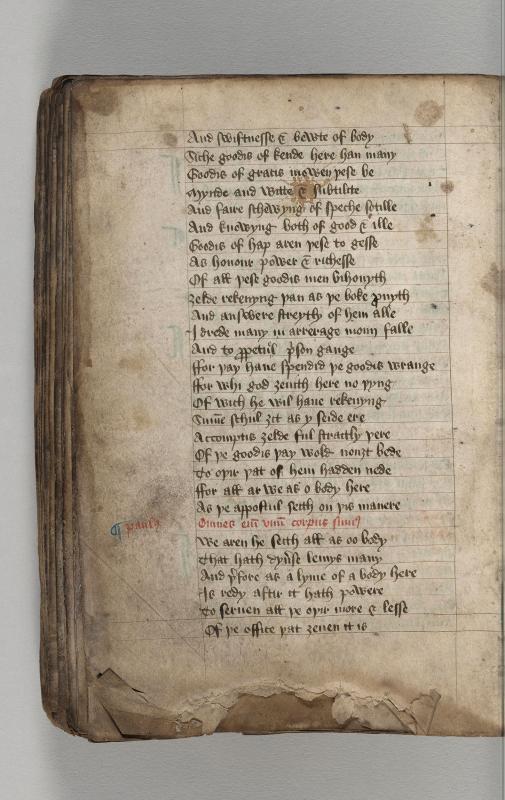 And swiftnesse & bewte of body
Siche goodis of kende here han many
Goodis of gracis mowen þese be
Mynde and witte & subtilite
And faire schewyng of speche sotille
And knowyng both of good & ille
Goodis of hap aren þese to gesse
As honour power & richesse
Of all þese goodis men bihouyth
Zelde rekenyng þan as þe boke pruyth
And answere streytly of hem alle
I drede many in arrerage moun falle
And to ppetuel pson gange
ffor þay haue spendid þe goodis wrange
ffor whi god zeuith here no þyng
Of wich he wil haue rekenyng
Sume schul zit as y seide ere
Accomptis zelde ful straitly þere
Of þe goodis þay wold nouzt bede
To oþir þat of hem hadden nede
ffor all ar we as o body here
As þe appostul seith on þis manere
¶ paulus Omnes eni vnu corpus sumus
We aren he seith all as oo body
That hath dyuse lemys many
And þfore as a lyme of a body here
Is redy aftir it hath powere
To seruen all þe oþir more & lesse
Of þe office þat zeuen it is